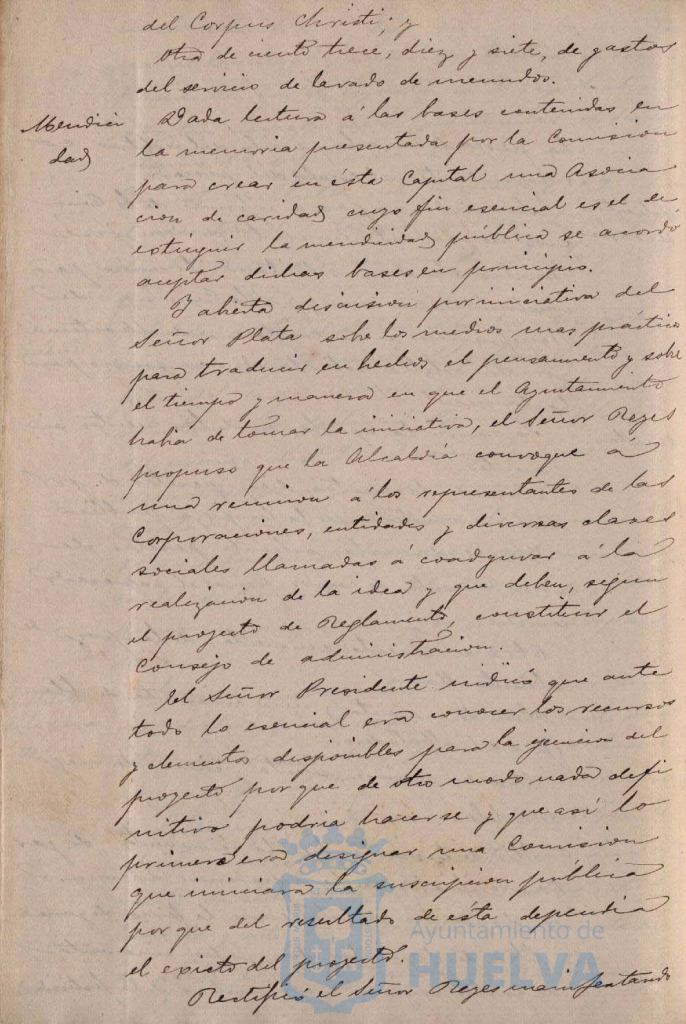 del Corpus Christi; y
Otra de ciento trece, diez y siete, de gastos
del servicio de lavado de menudos.
Mendici
dad
Dada lectura á las bases contenidas en
la memoria presentada por la Comision
para crear en ésta Capital una Asocia
cion de caridad cuyo fin esencial es el de
extinguir la mendicidad pública se acordó
aceptar dichas bases en principio.
Y abierta discusion por iniciativa del
Señor Plata sobre los medios mas prácticos
para traducir en hechos el pensamiento y sobre
el tiempo y manera en que el Ayuntamiento
habia de tomar la iniciativa, el Señor Reyes
propuso que la Alcaldía convoque á
una reunion á los representantes de las
Corporaciones, entidades y diversas clases
sociales llamadas á coadyuvar á la
realizacion de la idea y que deben, segun
el proyecto de Reglamento, constituir el
Consejo de administracion.
El Señor Presidente indicó que ante
todo lo esencial era conocer los recursos
y elementos disponibles para la ejecucion del
proyecto por que de otro modo nada defi
nitivo podria hacerse y que así lo
primero era designar una Comision
que iniciara la suscripcion pública
por que del resultado de ésta dependia
el exito del proyecto.
Rectificó el Señor Reyes manifestando
Ayuntamiento de
HUELVA